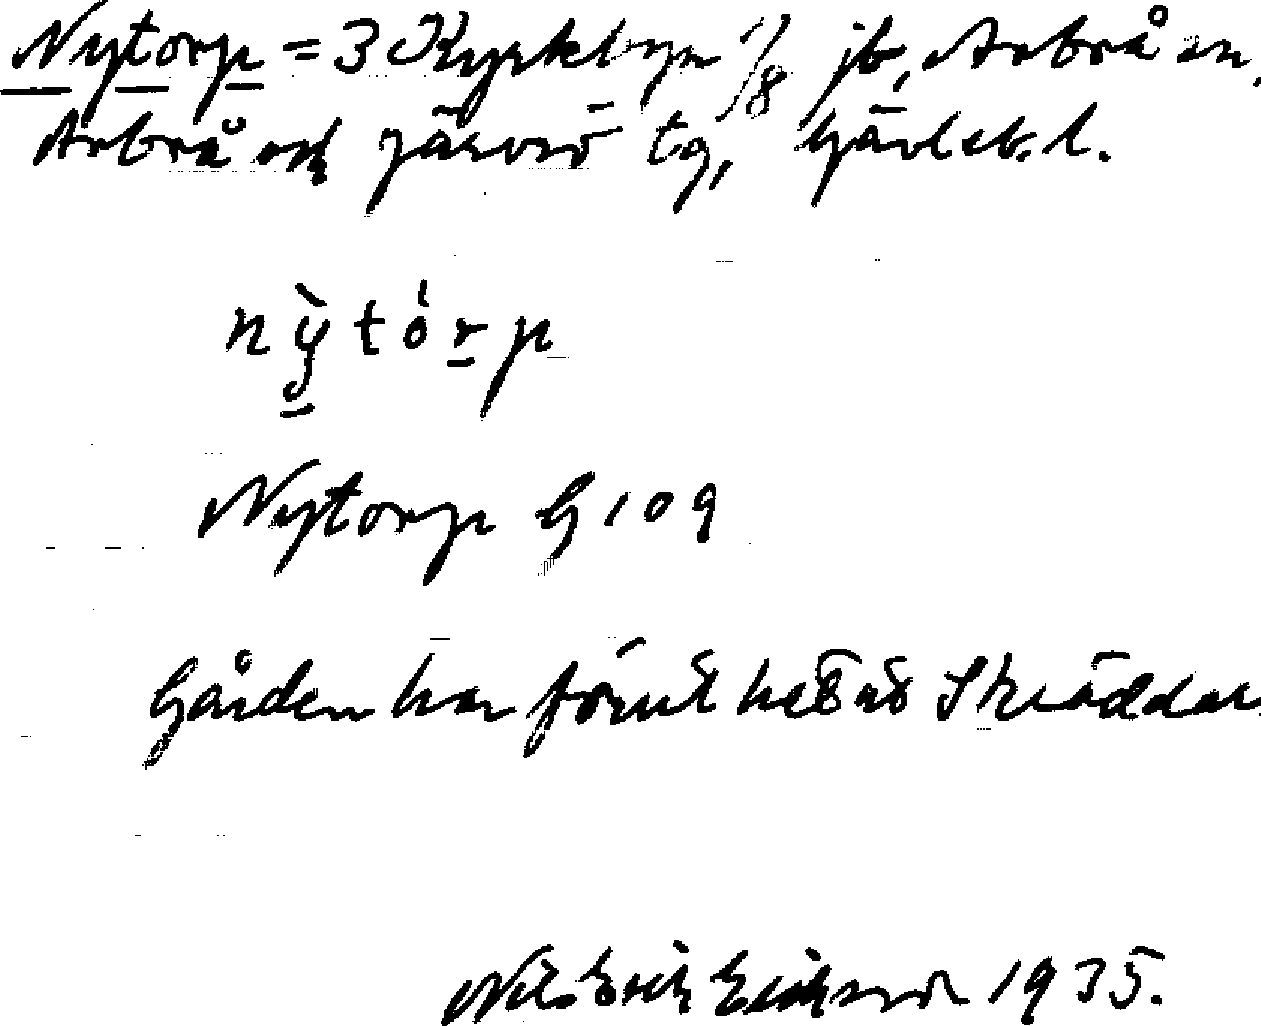 Nytorp = 3 Kyrkbyn 1/8 jb, Arbrå sn,
Arbrå och Järvsö tg, Gävleb. l.
nỳtórp
Nytorp G 109
Gården har förut hetat Skräddar
Nils Erik Eriksson 1935.